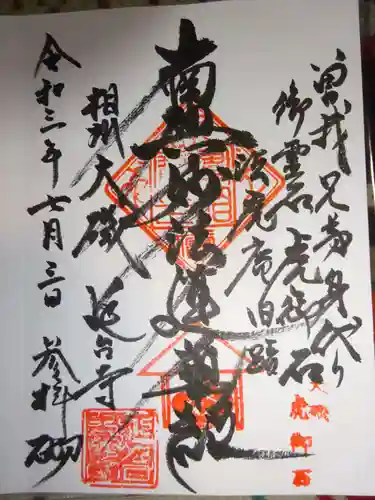 曽我兄弟身代り
御霊石 虎御石
法虎庵旧跡
南無妙法蓮華経
相州大磯 延台寺
令和三年七月三日 参拝
大磯
虎御石